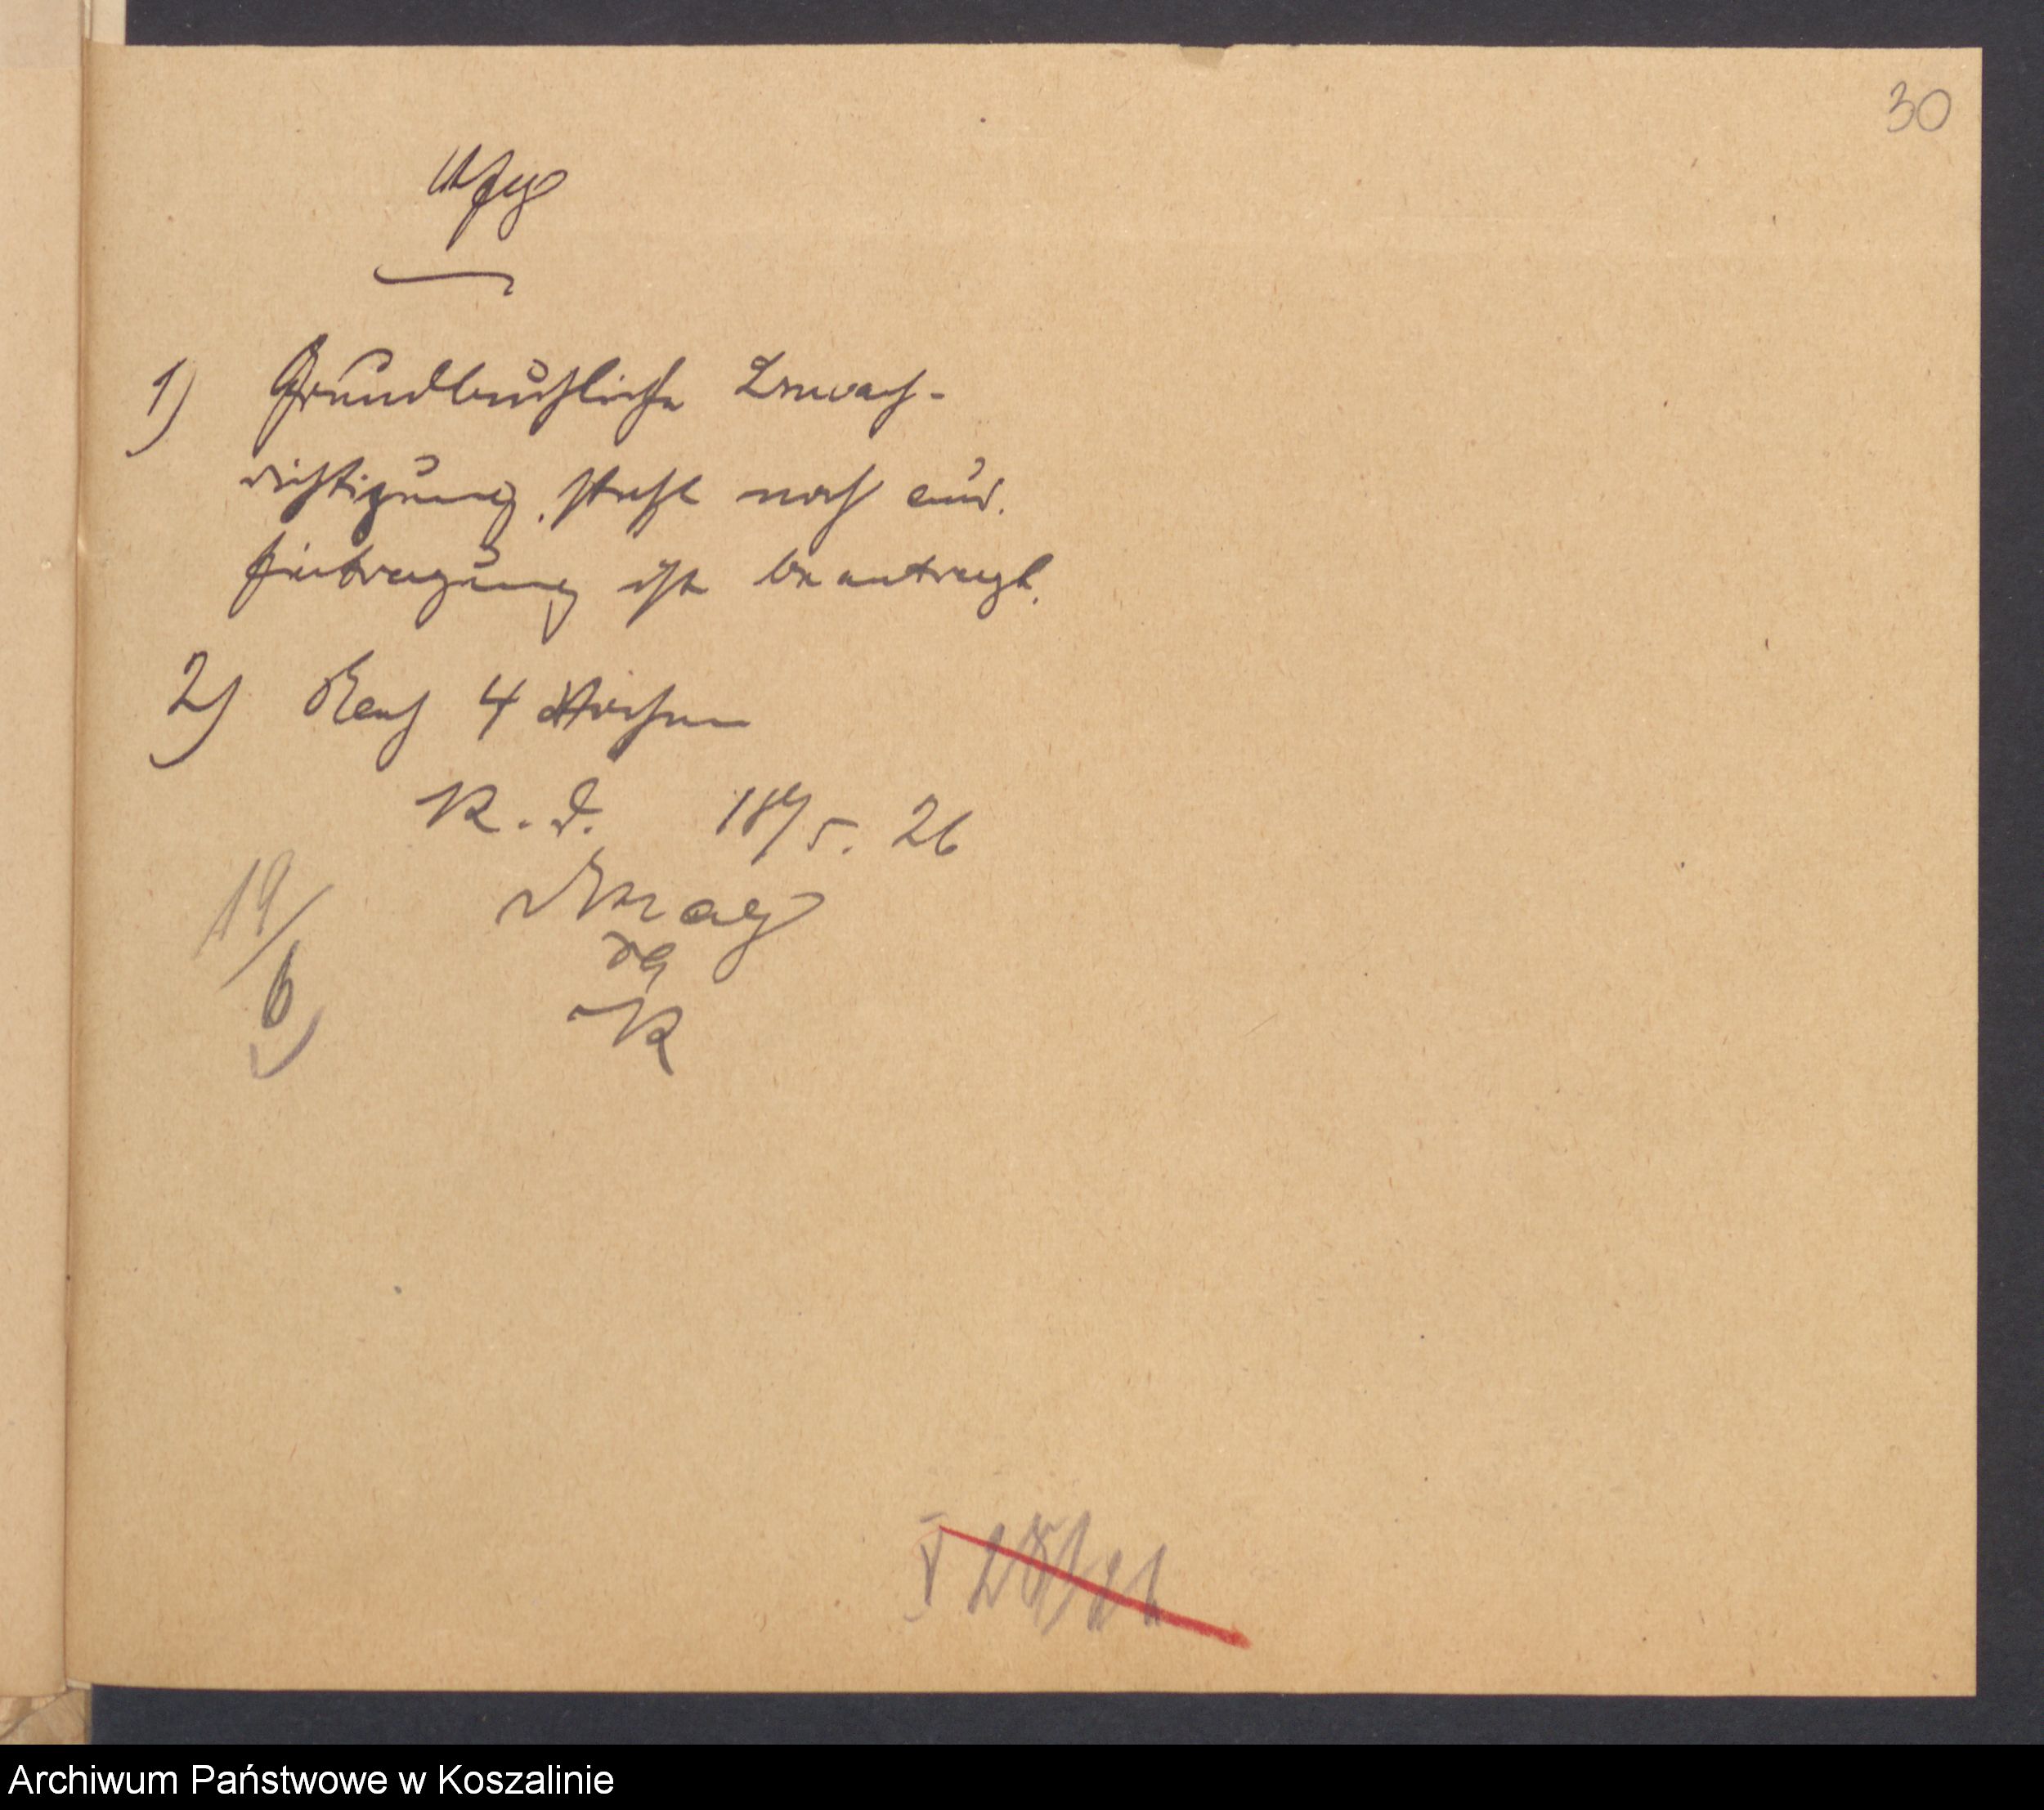 30
Vfg
1) Grundbuchliche Benach-
richtigung steht noch aus.
Eintragung ist beantragt.
2) Nach 4 Wochen
K. d. 18/5. 26
Mag
19/6
Archiwum Państwowe w Koszalinie